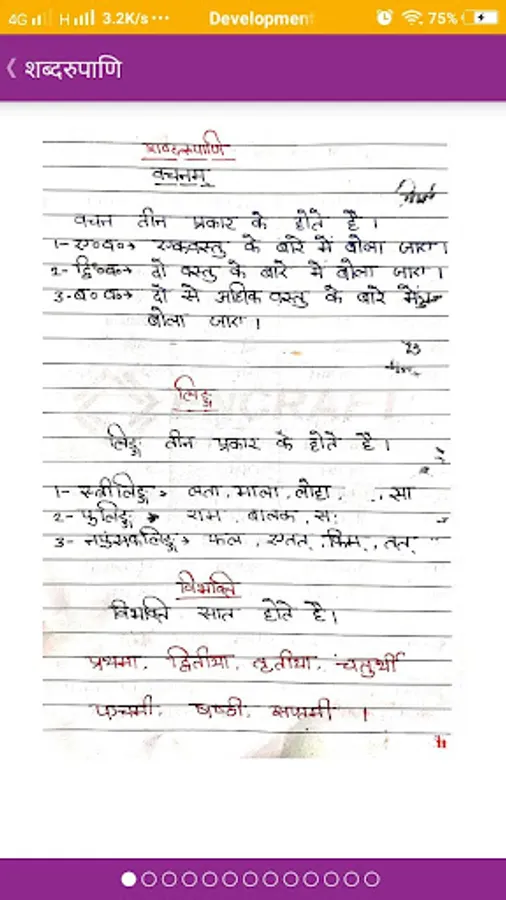 4G H 3.2K/s ... Development 75%
शब्दरुपाणि
शब्दरुपाणि
वचनम्
वचन तीन प्रकार के होते है ।
1- ए०व०→ एकवस्तु के बारे में बोला जाए।
2- द्वि०व०→ दो वस्तु के बारे में बोला जाए।
3- ब०व०→ दो से अधिक वस्तु के बारे में
बोला जाए।
23
लिङ्ग
लिङ्ग तीन प्रकार के होते है।
1- स्त्रीलिङ्ग → लता, माला, सा
2- पुलिङ्ग → राम, बालक, सः
3- नपुंसकलिङ्ग → फल, एतत्, किम्, तत्
विभक्ति
विभक्ति सात होते है।
प्रथमा, द्वितीया, तृतीया, चतुर्थी
पञ्चमी, षष्ठी, सप्तमी ।